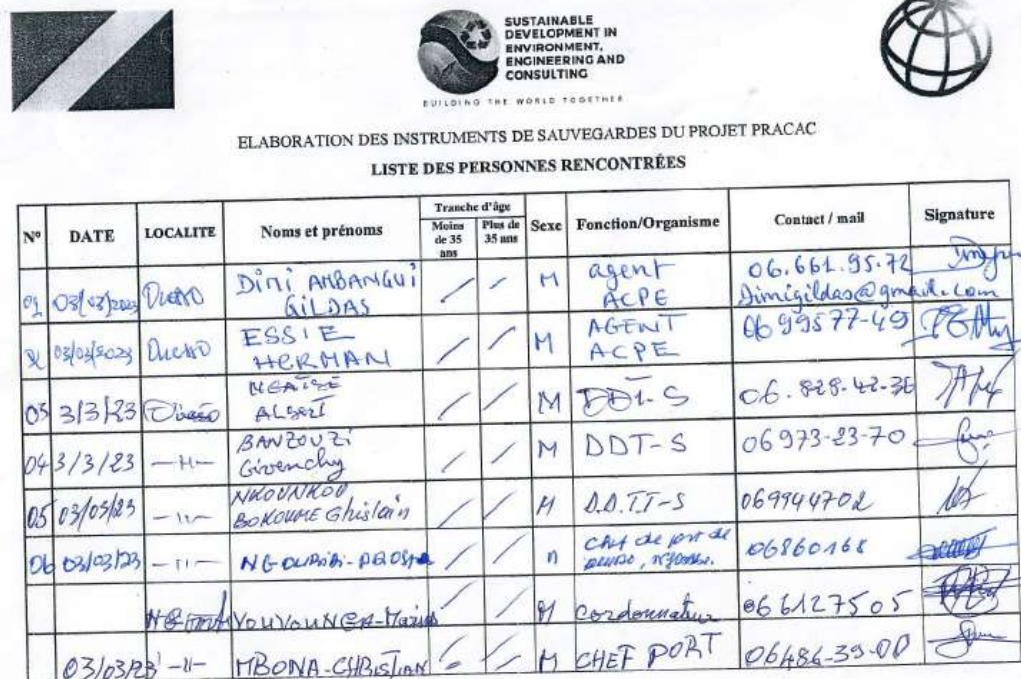 SUSTAINABLE
DEVELOPMENT IN
ENVIRONMENT,
ENGINEERING AND
CONSULTING
BUILDING THE WORLD TOGETHER
ELABORATION DES INSTRUMENTS DE SAUVEGARDES DU PROJET PRACAC
LISTE DES PERSONNES RENCONTRÉES
N° DATE LOCALITE Noms et prénoms Tranche d'âge Moins de 35 ans Plus de 35 ans Sexe Fonction/Organisme Contact / mail Signature
Dimi AMBANGUI GILDAS M agent ACPE 06.661.95.72 Dimigildas@gmail.com
03/03/2023 ESSIE HERMAN M AGENT ACPE 06 99577-49
03 3/3/23 ALBERT M 06.828-42-36
04 3/3/23 -11- BANZOUZI Givenchy M DDT-S 06973-23-70
05 03/03/23 -11- NKOUNKOU BOKOUME Ghislain M D.D.T.T-S 069944702
06 03/03/23 -11- 06860168
YOUVOUNGA-Marius M Cordonnateur 066127505
03/03/23 -11- MBONA-CHRISTIAN M CHEF PORT 06486-39-00